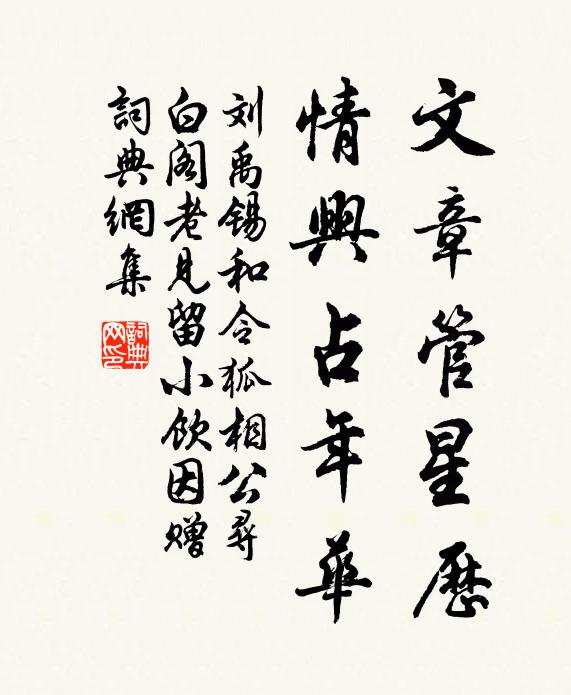 文章管星歷
情興占年華
刘禹锡和令狐相公尋
白阁老見留小飲因赠
詞典網集
詞典网印